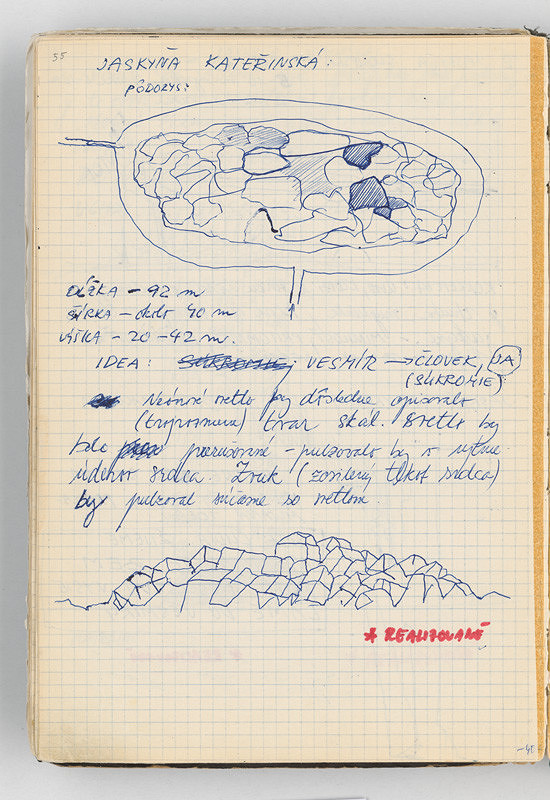 55
JASKYŇA KATEŘINSKÁ:
PÔDORYS:
DĹŽKA - 92 m
ŠÍRKA - okolo 40 m
VÝŠKA - 20 - 42 m.
IDEA: SÚKROMIE; VESMÍR → ČLOVEK, JA
(SÚKROMIE):
Neónové svetlo by dôsledne opisovalo
(trojrozmerne) tvar skál. Svetlo by
bolo prerušované - pulzovalo by v rytme
úderov srdca. Zvuk (zosilený tlkot srdca)
by pulzoval súčasne so svetlom.
* REALIZOVANÉ